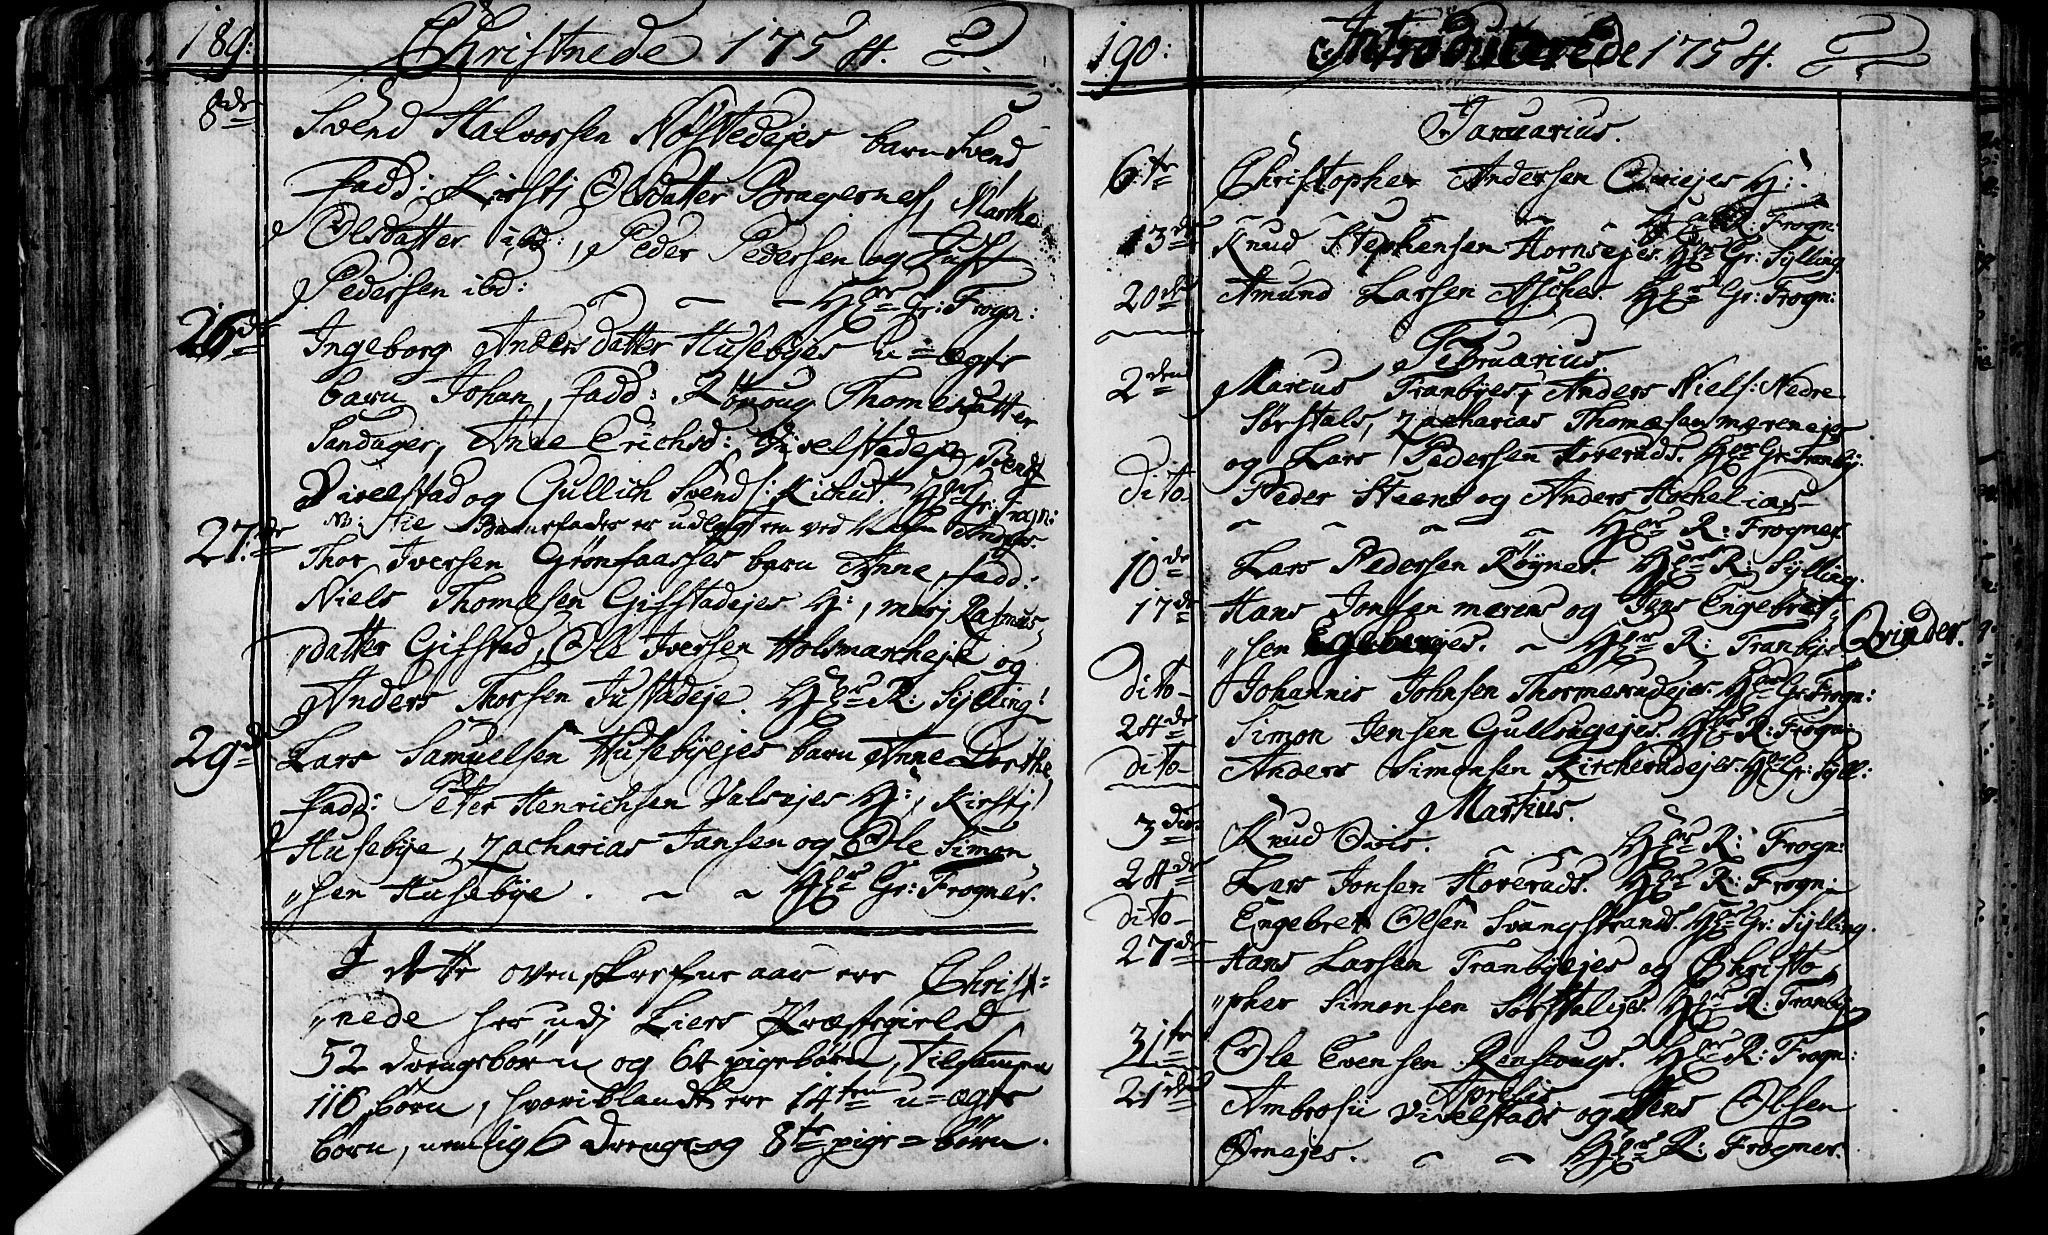 189:
Christnede 1754.
8de
Svend Halvorsen Nøstedejes barn Svend
Fadd: Kirsti Olsdatter Bragernes, Marthe
Olsdatter ibd:, Peder Pedersen og
Pedersen ibd: Hr Gr: Frogn:
26de
Ingeborg Andersdatter Husebyes u=ægte
barn Johan, fadd: Rønoug Thomesdatter
Sandager, Anne Erichsd: Vivelstadeje, Svend
Vivelstad og Gullich Svends: Kichut. Hr Gr: Frogn:
NB: Til Barnefader er udlagt en ved Anders.
27de
Thor Iversen Grønsaasses barn Anne, fadd:
Niels Thomesen Gifstadejes H:, Marj Rasmus,,
,,datter Gifstad, Ole Iversen Holsmarcheje og
Anders Thorsen Justadeje. Hr R: Sylling!
29de
Lars Samuelsen Husebyejes barn Anne Dorthe
fadd: Peter Henrichsen Valsejes H:, Kirstj
Husebye, Zacharias Jansen og Ole Simon
,,sen Husebye. Hr Gr: Frogner.
I dette ovenskrefne aar ere Christ=
,,nede her udj Liers Præstegield
52 drengebørn og 64 pigebørn, tilsamen
116 børn, hvoriblandt ere 14ten u=ægte
børn, nemlig 6 drenge og 8te pige=børn.
190:
Introducerede 1754.
Januarius.
6:te Christopher Andersen Qviejes H:
Hr R: Frogn:
13de Knud Stephensen Hornsejes. Hr Gr: Sylling
20de Amund Larsen Asches. Hr Gr: Frogn:
Februarius.
2den Marcus Tranbyes, Anders Niels: Nedre
Sørstals, Zacharias Thomesen mærenejes
og Lars Pedersen Hoveruds. Hr Gr: Tranby:
dito Peder Steens og Anders Hochelias
Hr R: Frogner
10de Lars Pedersen Røynes. Hr R: Sylling.
17de Hans Jonsen mærens og Jens Engebret,,
,,sen Egebergejes. Hr R: Tranbye.
Qvinder.
dito Johannis Johnsen Thormerudejes. Hr Gr Frogn:
24de Simon Jensen Gullougejes. Hr R: Frogn:
dito Anders Simonsen Kircherudejes. Hr Gr: Syll:
Martius.
3die Knud Qvis. Hr R: Frogn:
24de Lars Jonsen Hoveruds. Hr R: Frogn:
dito Engebret Olsen Svangstrands. Hr Gr: Sylling.
27de Hans Larsen Tranbyejes og Christo,,
,,pher Simonsen Sørstalejes. Hr R: Tranby
31te Ole Evensen Renschougs. Hr R: Frogn:
Aprilis
21de Ambrosii Vivelstads og Jens Olsen
Ørnejes. Hr R: Frogner.